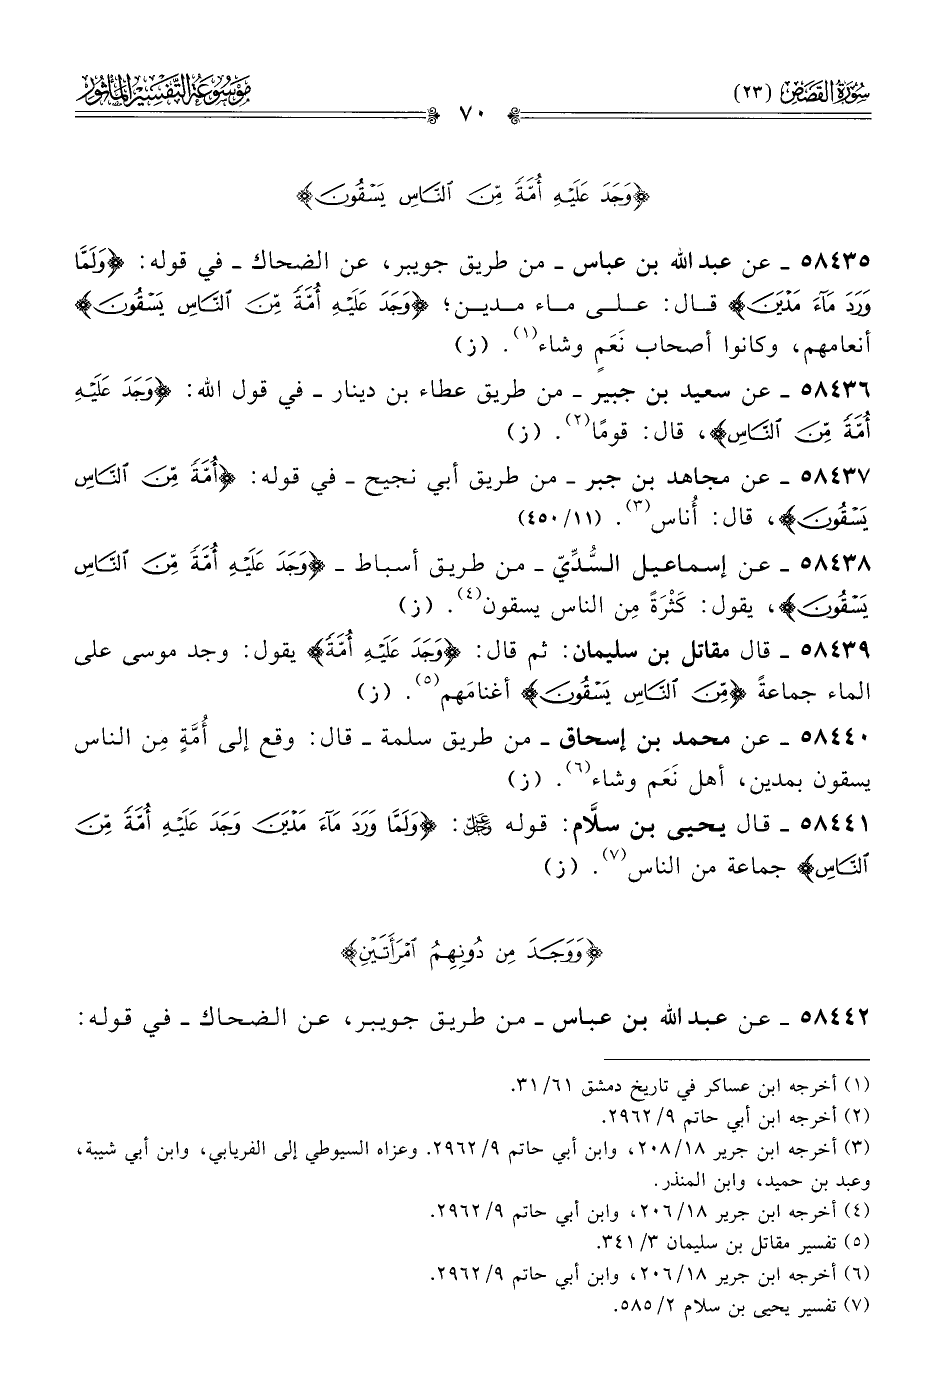 سورة القصص (٢٣)
موسوعة التفسير المأثور
٧٠
﴿وَجَدَ عَلَيْهِ أُمَّةً مِّنَ ٱلنَّاسِ يَسْقُونَ﴾
٥٨٤٣٥ ـ عن عبد الله بن عباس ـ من طريق جويبر، عن الضحاك ـ في قوله: ﴿وَلَمَّا
وَرَدَ مَآءَ مَدْيَنَ﴾ قال: على ماء مدين؛ ﴿وَجَدَ عَلَيْهِ أُمَّةً مِّنَ ٱلنَّاسِ يَسْقُونَ﴾
أنعامهم، وكانوا أصحاب نَعَمٍ وشاء(١). (ز)
٥٨٤٣٦ ـ عن سعيد بن جبير ـ من طريق عطاء بن دينار ـ في قول الله: ﴿وَجَدَ عَلَيْهِ
أُمَّةً مِّنَ ٱلنَّاسِ﴾، قال: قومًا(٢). (ز)
٥٨٤٣٧ ـ عن مجاهد بن جبر ـ من طريق أبي نجيح ـ في قوله: ﴿أُمَّةً مِّنَ ٱلنَّاسِ
يَسْقُونَ﴾، قال: أُناس(٣). (٤٥٠/١١)
٥٨٤٣٨ ـ عن إسماعيل السُّدِّيّ ـ من طريق أسباط ـ ﴿وَجَدَ عَلَيْهِ أُمَّةً مِّنَ ٱلنَّاسِ
يَسْقُونَ﴾، يقول: كَثْرَةً مِن الناس يسقون(٤). (ز)
٥٨٤٣٩ ـ قال مقاتل بن سليمان: ثم قال: ﴿وَجَدَ عَلَيْهِ أُمَّةً﴾ يقول: وجد موسى على
الماء جماعةً ﴿مِّنَ ٱلنَّاسِ يَسْقُونَ﴾ أغنامَهم(٥). (ز)
٥٨٤٤٠ ـ عن محمد بن إسحاق ـ من طريق سلمة ـ قال: وقع إلى أُمَّةٍ مِن الناس
يسقون بمدين، أهل نَعَم وشاء(٦). (ز)
٥٨٤٤١ ـ قال يحيى بن سلَّام: قوله ﷻ: ﴿وَلَمَّا وَرَدَ مَآءَ مَدْيَنَ وَجَدَ عَلَيْهِ أُمَّةً مِّنَ
ٱلنَّاسِ﴾ جماعة من الناس(٧). (ز)
﴿وَوَجَدَ مِن دُونِهِمُ ٱمْرَأَتَيْنِ﴾
٥٨٤٤٢ ـ عن عبد الله بن عباس ـ من طريق جويبر، عن الضحاك ـ في قوله:
(١) أخرجه ابن عساكر في تاريخ دمشق ٣١/٦١.
(٢) أخرجه ابن أبي حاتم ٢٩٦٢/٩.
(٣) أخرجه ابن جرير ٢٠٨/١٨، وابن أبي حاتم ٢٩٦٢/٩. وعزاه السيوطي إلى الفريابي، وابن أبي شيبة،
وعبد بن حميد، وابن المنذر.
(٤) أخرجه ابن جرير ٢٠٦/١٨، وابن أبي حاتم ٢٩٦٢/٩.
(٥) تفسير مقاتل بن سليمان ٣٤١/٣.
(٦) أخرجه ابن جرير ٢٠٦/١٨، وابن أبي حاتم ٢٩٦٢/٩.
(٧) تفسير يحيى بن سلام ٥٨٥/٢.